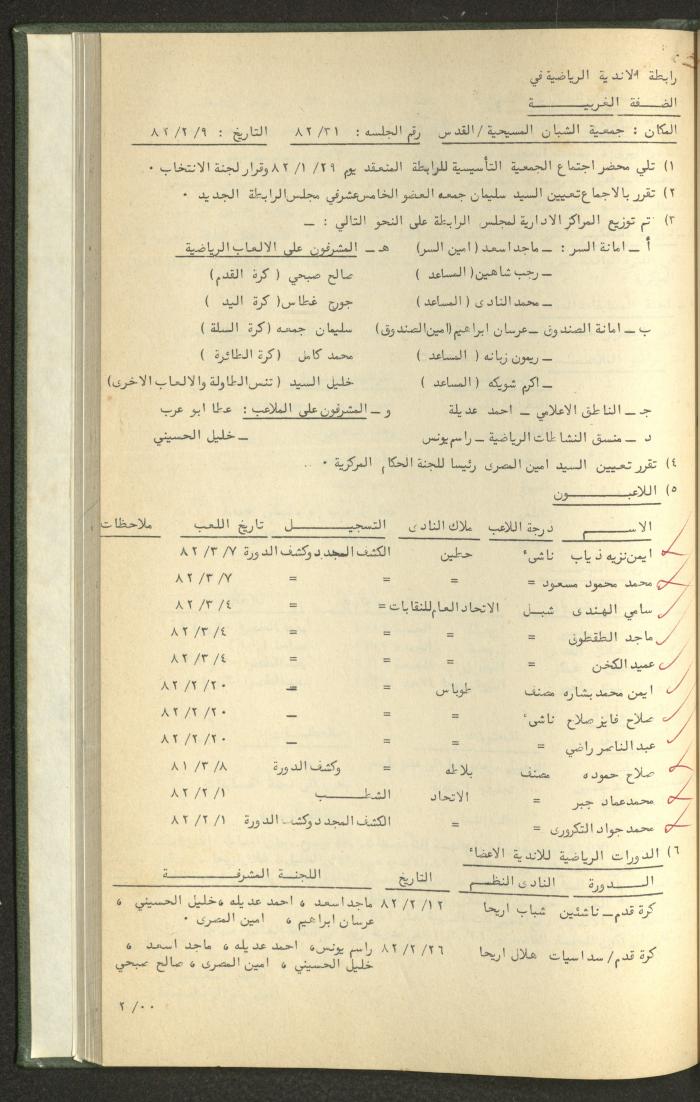 رابطة الاندية الرياضية في
الضفة الغربية
المكان : جمعية الشبان المسيحية / القدس رقم الجلسه : ٨٢/٣١ التاريخ : ٨٢/٢/٩
١) تلي محضر اجتماع الجمعية التأسيسية للرابطة المنعقد يوم ٨٢/١/٢٩ وقرار لجنة الانتخاب ٠
٢) تقرر بالاجماع تعيين السيد سليمان جمعه العضو الخامس عشر في مجلس الرابطة الجديد ٠
٣) تم توزيع المراكز الادارية لمجلس الرابطة على النحو التالي : ــ
أ ــ امانة السر : ــ ماجد اسعد (امين السر) هـ ــ المشرفون على الالعاب الرياضية
ــ رجب شاهين (المساعد ) صالح صبحي (كرة القدم)
ــ محمد النادى (المساعد ) جورج غطاس (كرة اليد )
ب ــ امانة الصندوق ــ عرسان ابراهيم (امين الصندوق) سليمان جمعه (كرة السلة )
ــ ريمون زبانه ( المساعد ) محمد كامل (كرة الطائرة )
ــ اكرم شويكه (المساعد ) خليل السيد (تنس الطاولة والالعاب الاخرى)
جـ ــ الناطق الاعلامي ــ احمد عديلة و ــ المشرفون على الملاعب : عطا ابو عرب
د ــ منسق النشاطات الرياضية ــ راسم يونس ــ خليل الحسيني
٤) تقرر تعيين السيد امين المصرى رئيسا للجنة الحكام المركزية ٠
٥) اللاعبــون
الاســم درجة اللاعب ملاك النادى التسجيــل تاريخ اللعب ملاحظات
ايمن نزيه ذياب ناشىء حطين الكشف المجدد وكشف الدورة ٨٢/٣/٧
محمد محمود مسعود = = = = ٨٢/٣/٧
سامي الهندى شبــل الاتحاد العام للنقابات = = ٨٢/٣/٤
ماجد الطقطوق = = = = ٨٢/٣/٤
عميد الكخن = = = = ٨٢/٣/٤
ايمن محمد بشاره مصنف طوباس = ــ ٨٢/٢/٢٠
صلاح فايز صلاح ناشىء = = ــ ٨٢/٢/٢٠
عبد الناصر راضي = = = ــ ٨٢/٢/٢٠
صلاح حموده مصنف بلاطه = وكشف الدورة ٨١/٣/٨
محمد عماد جبر = الاتحاد الشطــب ٨٢/٢/١
محمد جواد التكرورى = = الكشف المجدد وكشف الدورة ٨٢/٢/١
٦) الدورات الرياضية للاندية الاعضاء
الــدورة النادى النظــم التاريخ اللجنــة المشرفــة
كرة قدم ــ ناشئين شباب اريحا ٨٢/٢/١٢ ماجد اسعد ، احمد عديله ، خليل الحسيني ،
عرسان ابراهيم ، امين المصرى ٠
كرة قدم / سداسيات هلال اريحا ٨٢/٢/٢٦ راسم يونس ، احمد عديله ، ماجد اسعد ،
خليل الحسيني ، امين المصرى ، صالح صبحي
٢/٠٠